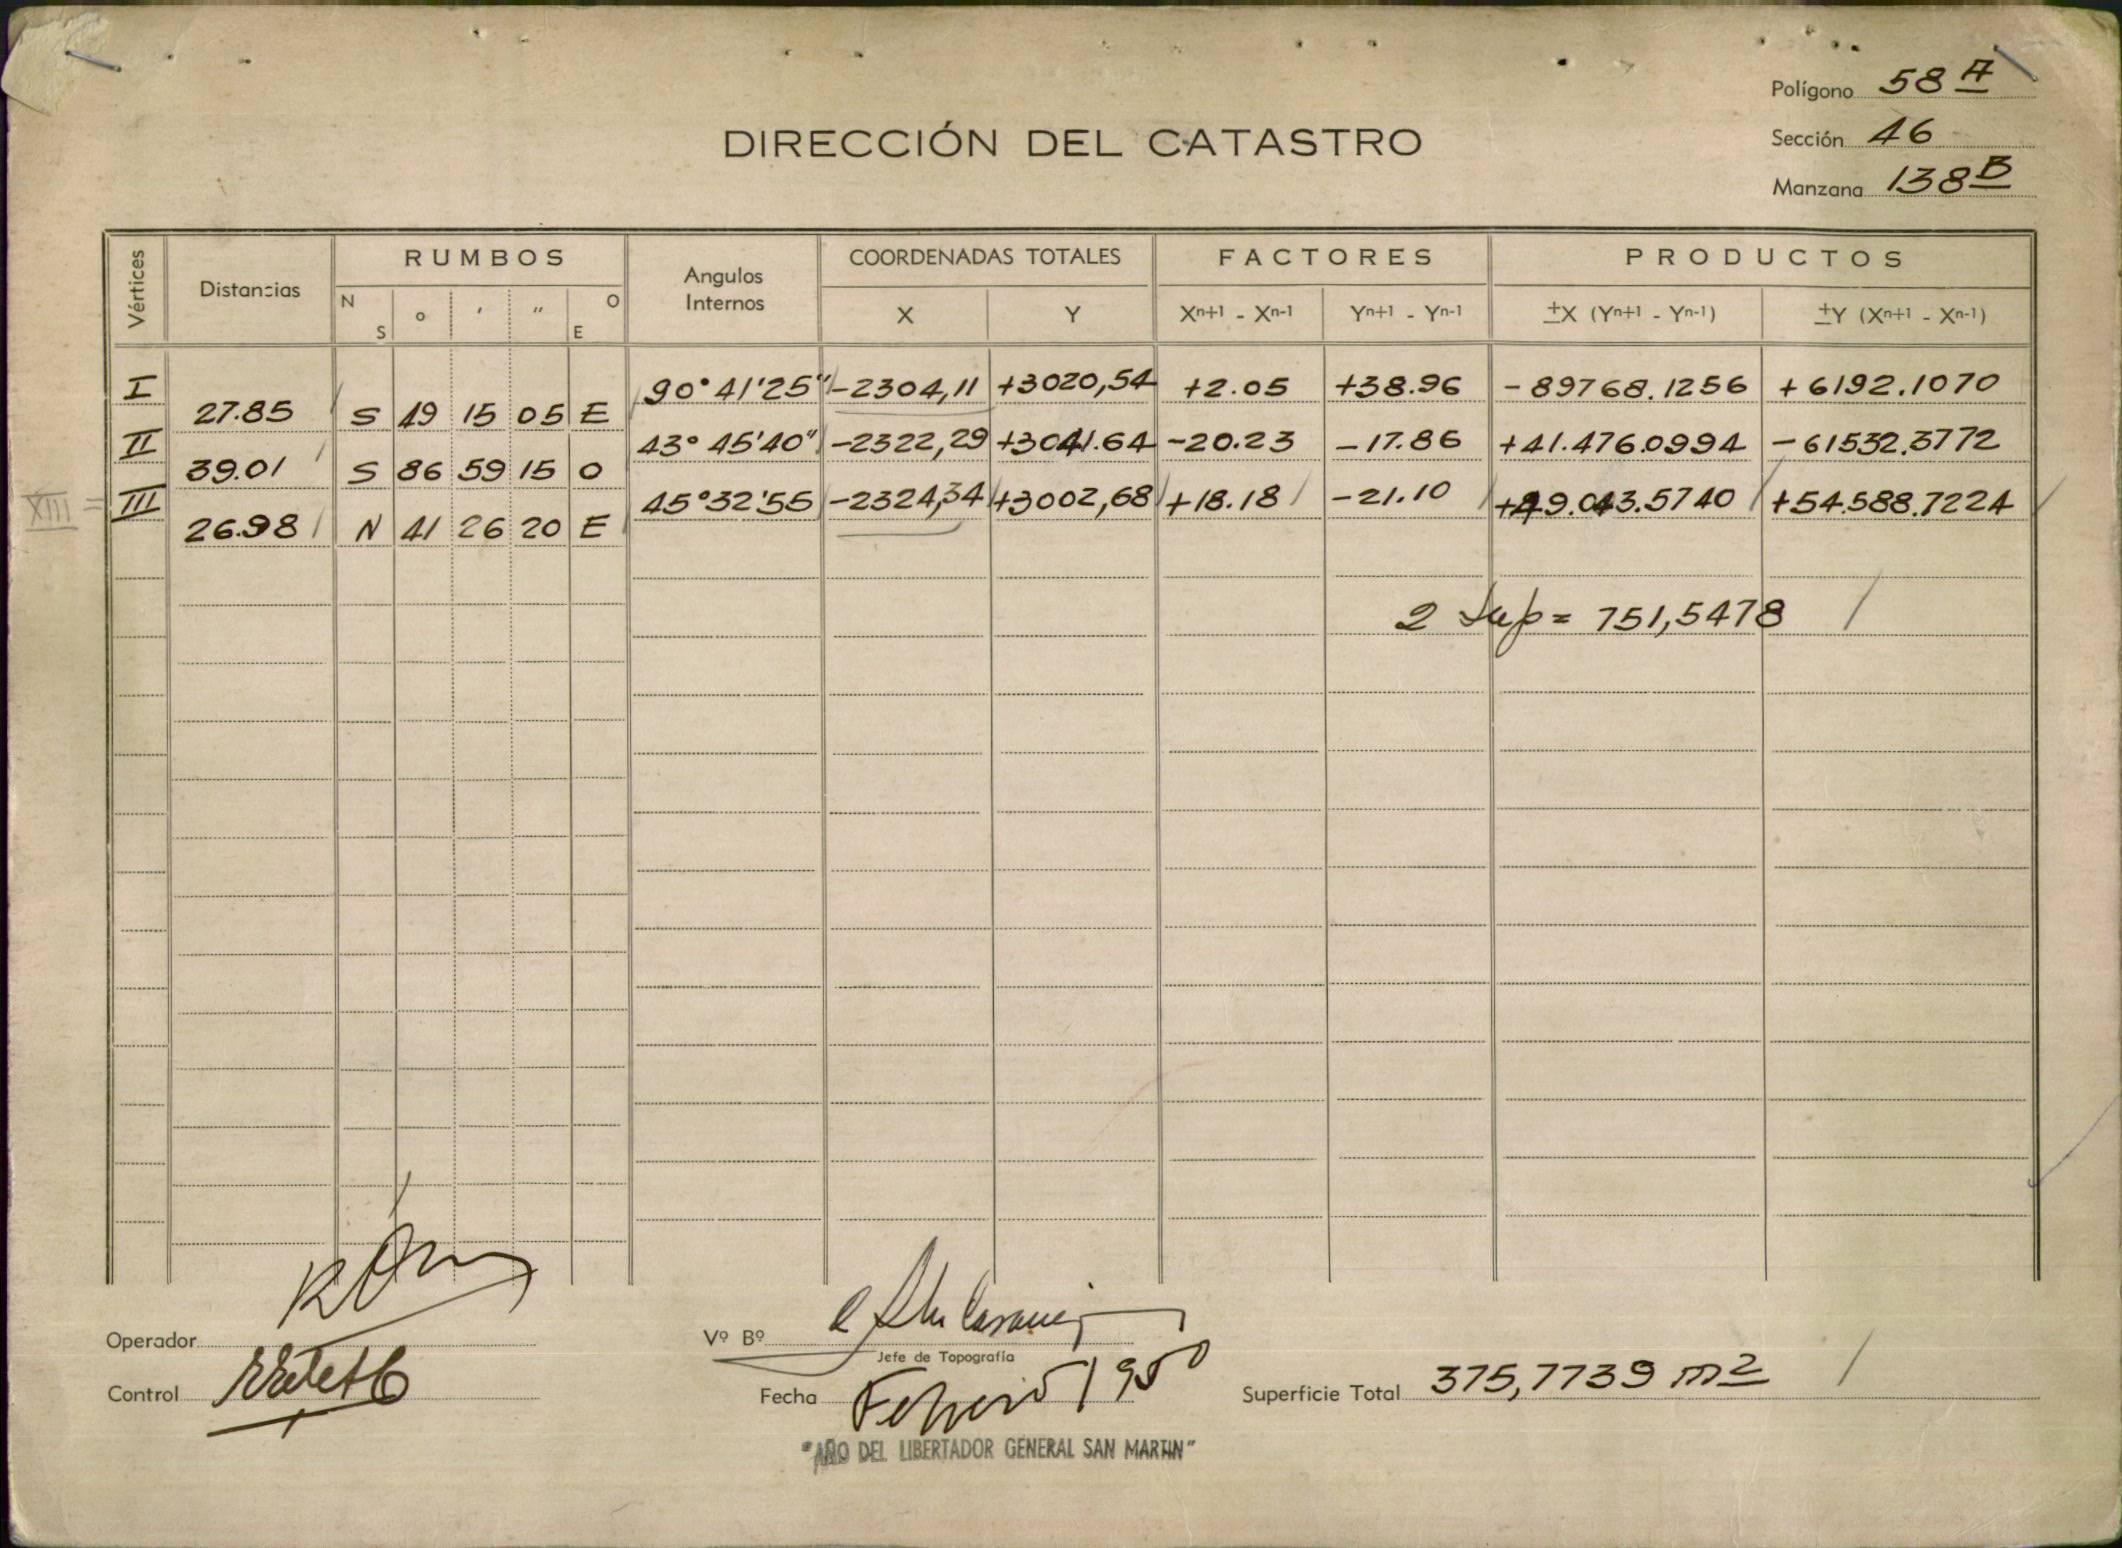 Polígono 58 A
DIRECCIÓN DEL CATASTRO
Sección 46
Manzana 138 B
Vértices
Distancias
RUMBOS
N S o ' " O E
Angulos
Internos
COORDENADAS TOTALES
X Y
FACTORES
Xn+1 - Xn-1 Yn+1 - Yn-1
PRODUCTOS
±X (Yn+1 - Yn-1) ±Y (Xn+1 - Xn-1)
I 90° 41' 25" -2304,11 +3020,54 +2.05 +38.96 -89768.1256 +6192.1070
27.85 S 49 15 05 E
II 43° 45' 40" -2322,29 +3041.64 -20.23 -17.86 +41.476.0994 -61532.3772
39.01 S 86 59 15 O
XIII = III 45° 32' 55 -2324,34 +3002,68 +18.18 -21.10 +49.043.5740 +54.588.7224
26.98 N 41 26 20 E
2 Sup = 751,5478
Operador
Vº Bº
Jefe de Topografía
Control
Fecha Febrero 1950
Superficie Total 375,7739 m2
"AÑO DEL LIBERTADOR GENERAL SAN MARTIN"